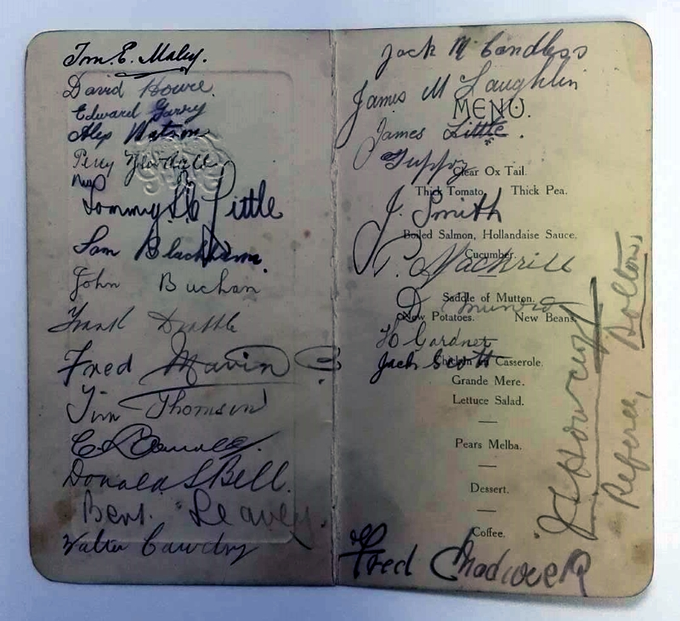 Tom. E. Maley.
David Howie.
Edward Garry
Alex Watson
Percy
Tommy Little
Sam Blackham.
John Buchan
Frank Drabble
Fred Mavin
Jim Thomson
Donald S Bell.
Bert. Leavey.
Walter Cawdry
Jack McCandless
James McLaughlin
MENU.
James Little.
Clear Ox Tail.
Thick Tomato. Thick Pea.
J. Smith
Boiled Salmon, Hollandaise Sauce.
Cucumber.
Saddle of Mutton.
D Munro
New Potatoes. New Beans.
H Gardner
Jack Scott
Chicken Casserole.
Grande Mere.
Lettuce Salad.
Pears Melba.
Dessert.
Coffee.
Fred
J T Howcroft
Referee, Bolton.